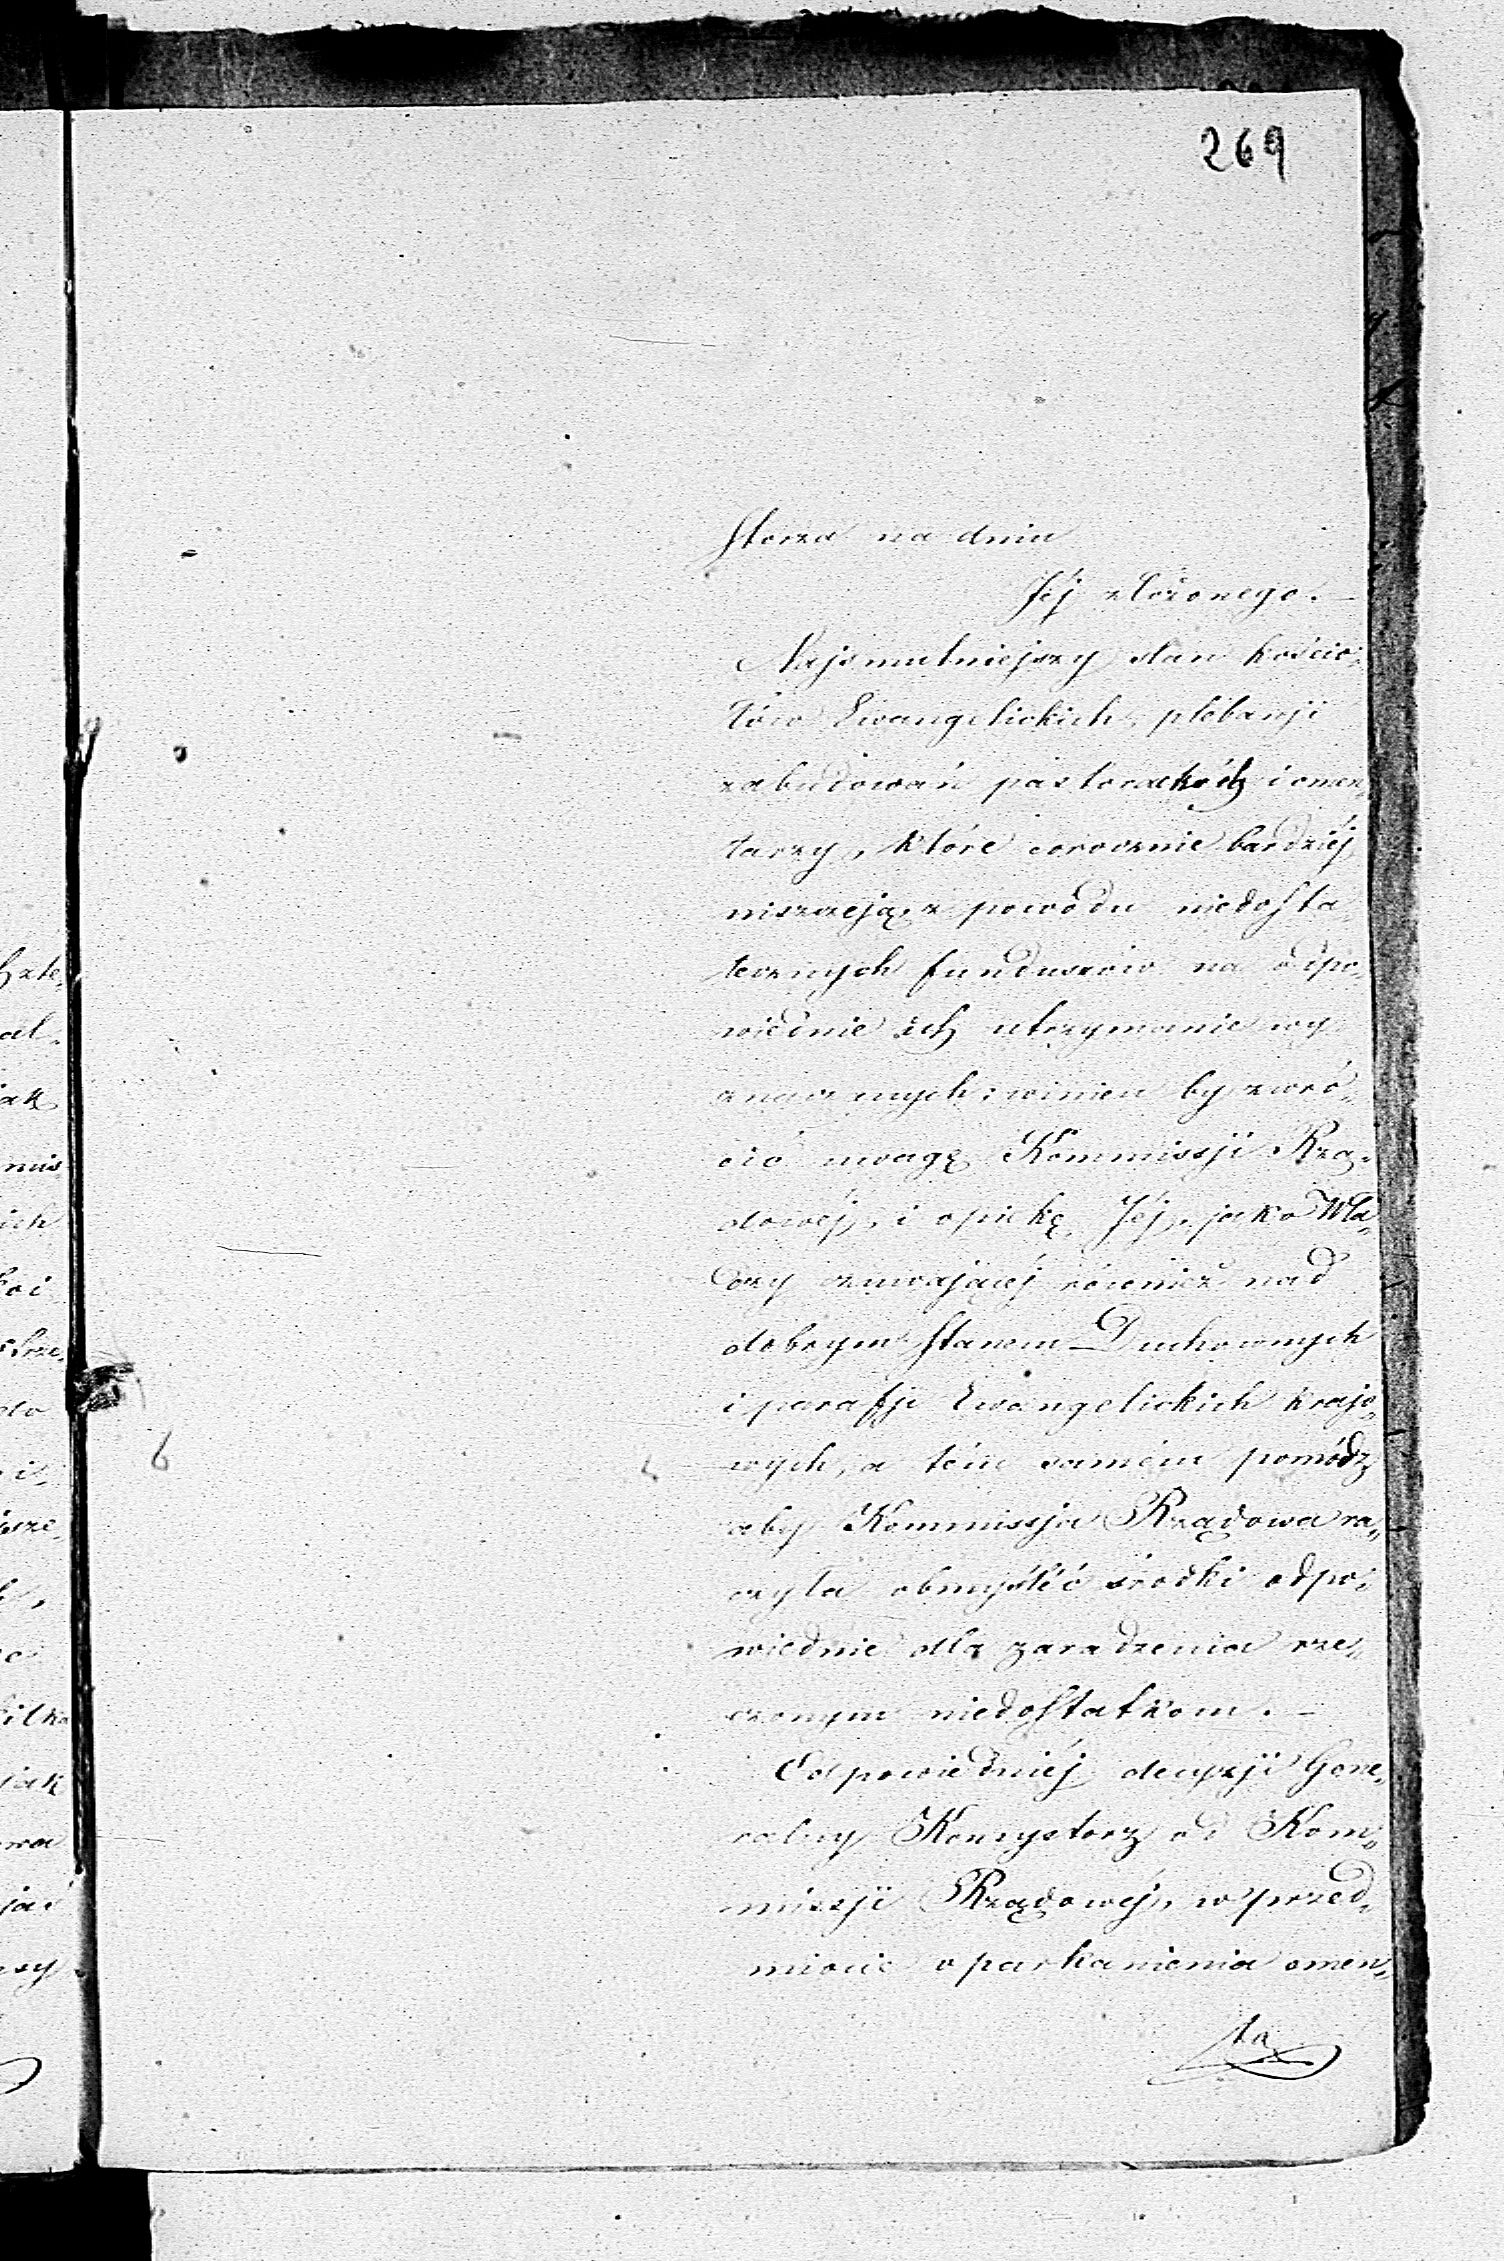 269
storza na dniu
Jéj złożonego. —
Najsmutniejszy stan kościo„
łów Ewangelickich, plebanji
zabudowań pastorskich i cmen„
tarzy, które corocznie bardziéj
niszczeją, z powodu niedosta„
tecznych funduszów na odpo„
wiednie ich utrzymanie wy
znaczonych; winien by zwró„
cić uwagę Kommissji Rzą„
dowéj, i opiekę Jéj, jako Wła„
dzy czuwającéj również nad
dobrym stanem Duchownych
i parafji Ewangelickich krajo„
wych, a tém samém pomódz
aby Kommissja Rządowa ra„
czyła obmyślić środki odpo„
wiednie dla zaradzenia rze„
czonym niedostatkom. —
Odpowiedniéj decyzji Gene„
ralny Konsystorz od Kom„
missji Rządowéj, w przed„
miocie oparkanienia cmen„
ta
6